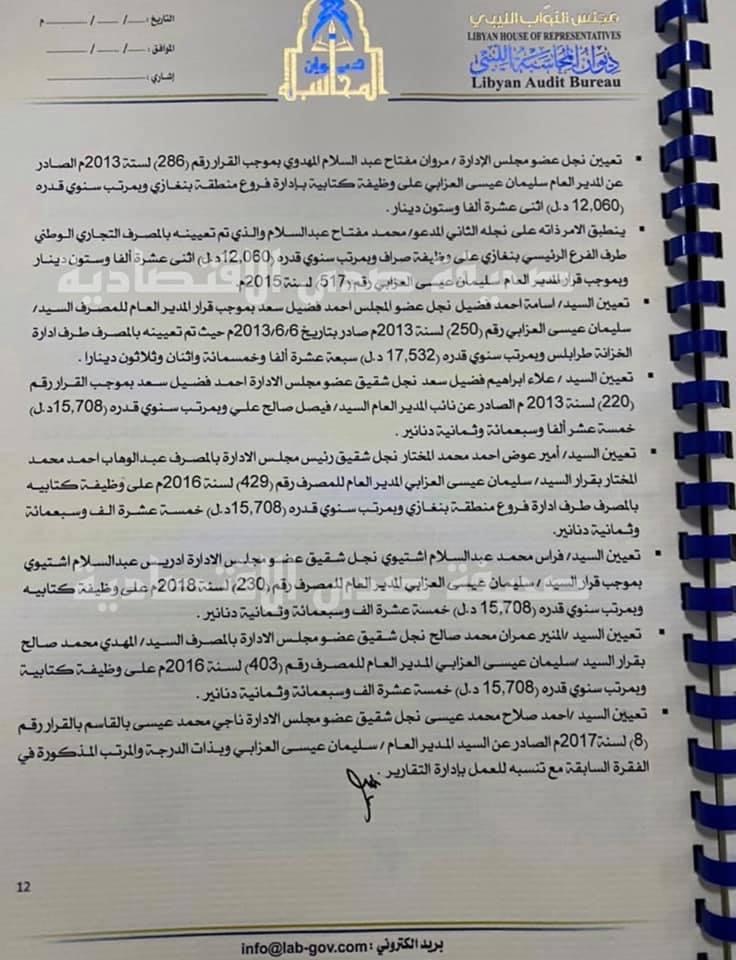 مجلس النواب الليبي
LIBYAN HOUSE OF REPRESENTATIVES
ديوان المحاسبة الليبي
Libyan Audit Bureau
ديوان
المحاسبة
التاريخ : ---/ ---- / ---------- م
الموافق : ---/ ---- / ----------
إشاري : ----------------------
▪ تعيين نجل عضو مجلس الإدارة / مروان مفتاح عبد السلام المهدوي بموجب القرار رقم (286) لسنة 2013م الصادر
عن المدير العام سليمان عيسى العزابي على وظيفة كتابية بإدارة فروع منطقة بنغازي وبمرتب سنوي قدره
(12,060 د.ل) اثنى عشرة ألفا وستون دينار .
▪ ينطبق الامر ذاته على نجله الثاني المدعو/ محمد مفتاح عبدالسلام والذي تم تعيينه بالمصرف التجاري الوطني
طرف الفرع الرئيسي بنغازي على وظيفة صراف وبمرتب سنوي قدره (12,060د.ل) اثنى عشرة ألفا وستون دينار
وبموجب قرار المدير العام سليمان عيسى العزابي رقم (517) لسنة 2015م.
▪ تعيين السيد/ أسامة احمد فضيل نجل عضو المجلس احمد فضيل سعد بموجب قرار المدير العام للمصرف السيد/
سليمان عيسى العزابي رقم (250) لسنة 2013م صادر بتاريخ 2013/6/6م حيث تم تعيينه بالمصرف طرف ادارة
الخزانة طرابلس وبمرتب سنوي قدره (17,532 د.ل) سبعة عشرة ألفا وخمسمائة واثنان وثلاثون دينارا .
▪ تعيين السيد / علاء ابراهيم فضيل سعد نجل شقيق عضو مجلس الادارة احمد فضيل سعد بموجب القرار رقم
(220) لسنة 2013 م الصادر عن نائب المدير العام السيد/ فيصل صالح علي وبمرتب سنوي قدره (15,708د.ل)
خمسة عشر ألفا وسبعمائة وثمانية دنانير .
▪ تعيين السيد/ أمير عوض احمد محمد المختار نجل شقيق رئيس مجلس الادارة بالمصرف عبدالوهاب احمد محمد
المختار بقرار السيد/ سليمان عيسى العزابي المدير العام للمصرف رقم (429) لسنة 2016م على وظيفة كتابيه
بالمصرف طرف ادارة فروع منطقة بنغازي وبمرتب سنوي قدره (15,708د.ل) خمسة عشرة الف وسبعمائة
وثمانية دنانير.
▪ تعيين السيد/ فراس محمد عبدالسلام اشتيوي نجل شقيق عضو مجلس الادارة ادريس عبدالسلام اشتيوي
بموجب قرار السيد / سليمان عيسى العزابي المدير العام للمصرف رقم (230) لسنة 2018م على وظيفة كتابيه
وبمرتب سنوي قدره (15,708 د.ل) خمسة عشرة الف وسبعمائة وثمانية دنانير .
▪ تعيين السيد /المنير عمران محمد صالح نجل شقيق عضو مجلس الادارة بالمصرف السيد/ المهدي محمد صالح
بقرار السيد /سليمان عيسى العزابي المدير العام للمصرف رقم (403) لسنة 2016م على وظيفة كتابية
وبمرتب سنوي قدره (15,708 د.ل) خمسة عشرة الف وسبعمائة وثمانية دنانير .
▪ تعيين السيد /احمد صلاح محمد عيسى نجل شقيق عضو مجلس الادارة ناجي محمد عيسى بالقاسم بالقرار رقم
(8) لسنة 2017م الصادر عن السيد المدير العام / سليمان عيسى العزابي وبذات الدرجة والمرتب المذكورة في
الفقرة السابقة مع تنسبه للعمل بإدارة التقارير .
صحيفة صدى الاقتصادية
صحيفة صدى الاقتصادية
12
بريد الكتروني : info@lab-gov.com